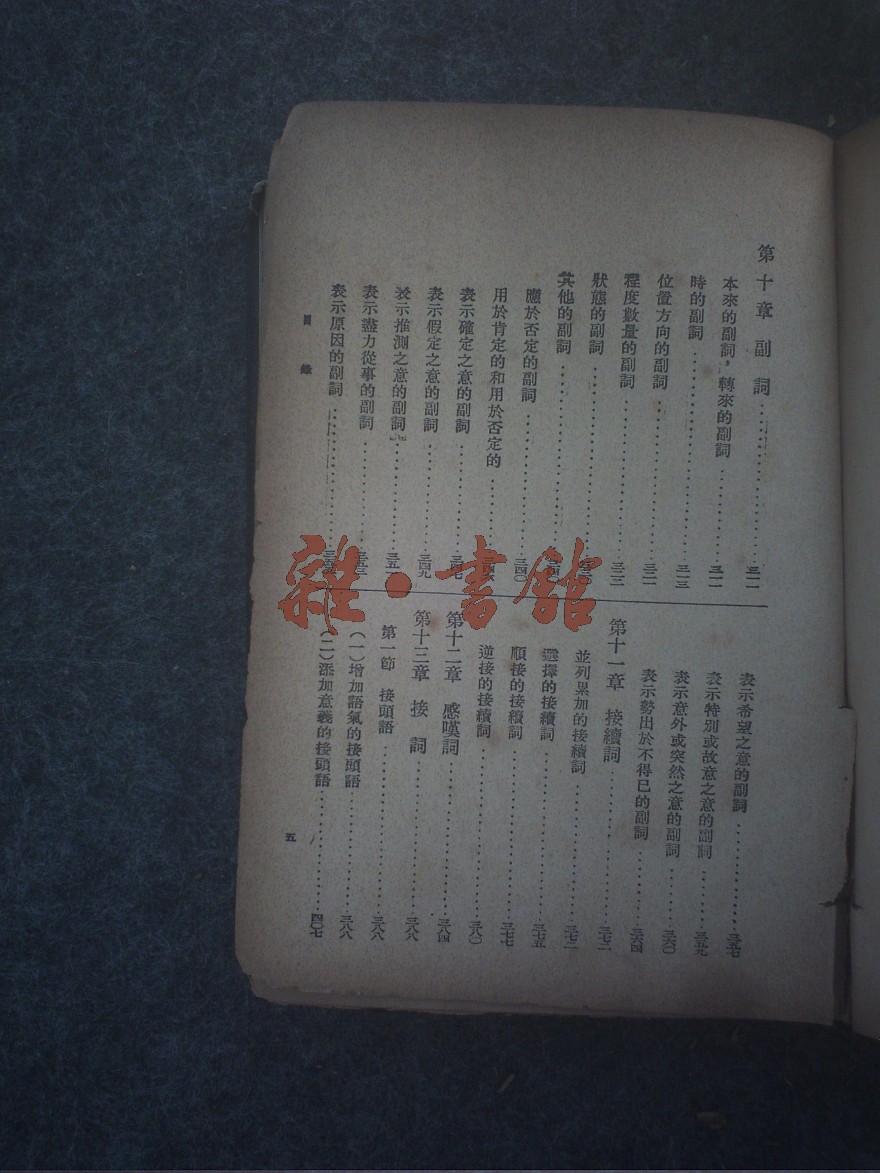 第十章　副　詞……三一一
本來的副詞，轉來的副詞……三一一
時的副詞……三一三
位置方向的副詞……三二一
程度數量的副詞……三二二
狀態的副詞……
其他的副詞……
應於否定的副詞……三四〇
用於肯定的和用於否定的……
表示確定之意的副詞……三四七
表示假定之意的副詞……三四九
表示推測之意的副詞……三五一
表示盡力從事的副詞……
表示原因的副詞……
表示希望之意的副詞……三五七
表示特別或故意之意的副詞……三五九
表示意外或突然之意的副詞……三六〇
表示勢出於不得已的副詞……三六四
第十一章　接續詞……三七二
並列累加的接續詞……三七二
選擇的接續詞……三七五
順接的接續詞……三七七
逆接的接續詞……三八〇
第十二章　感嘆詞……三八四
第十三章　接　詞……三八八
第一節　接頭語……三八八
（一）增加語氣的接頭語……三八八
（二）添加意義的接頭語……四〇七
目　錄
五
雜·書館